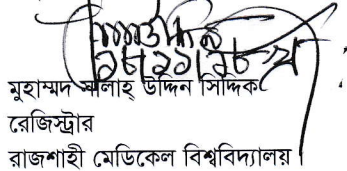 মুহাম্মদ সালাহ্ উদ্দিন সিদ্দিক
রেজিস্ট্রার
রাজশাহী মেডিকেল বিশ্ববিদ্যালয়।